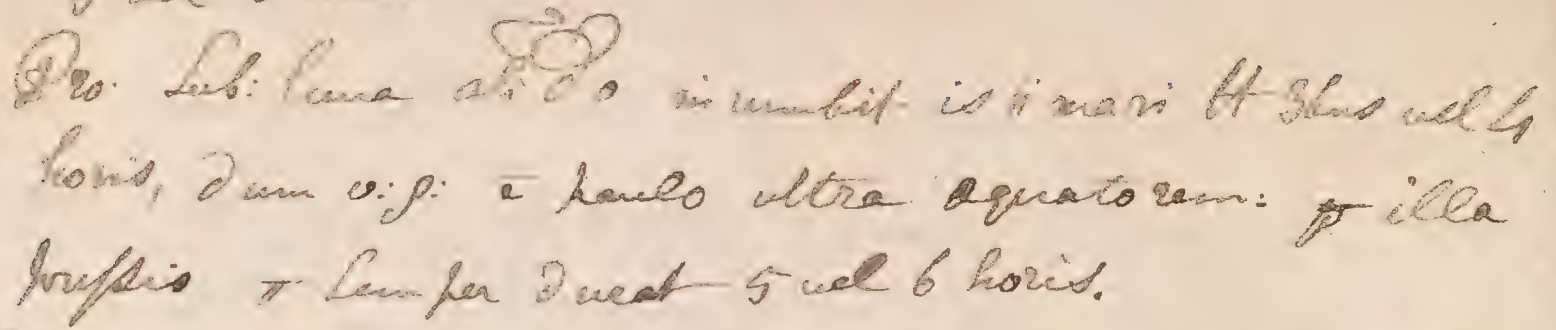 Pro. Sub: luna incumbit isti mari 3bus vel 4
horis, dum v:g: ē paulo ultra aquatorem: illa
pressio semper durat 5 vel 6 horis.